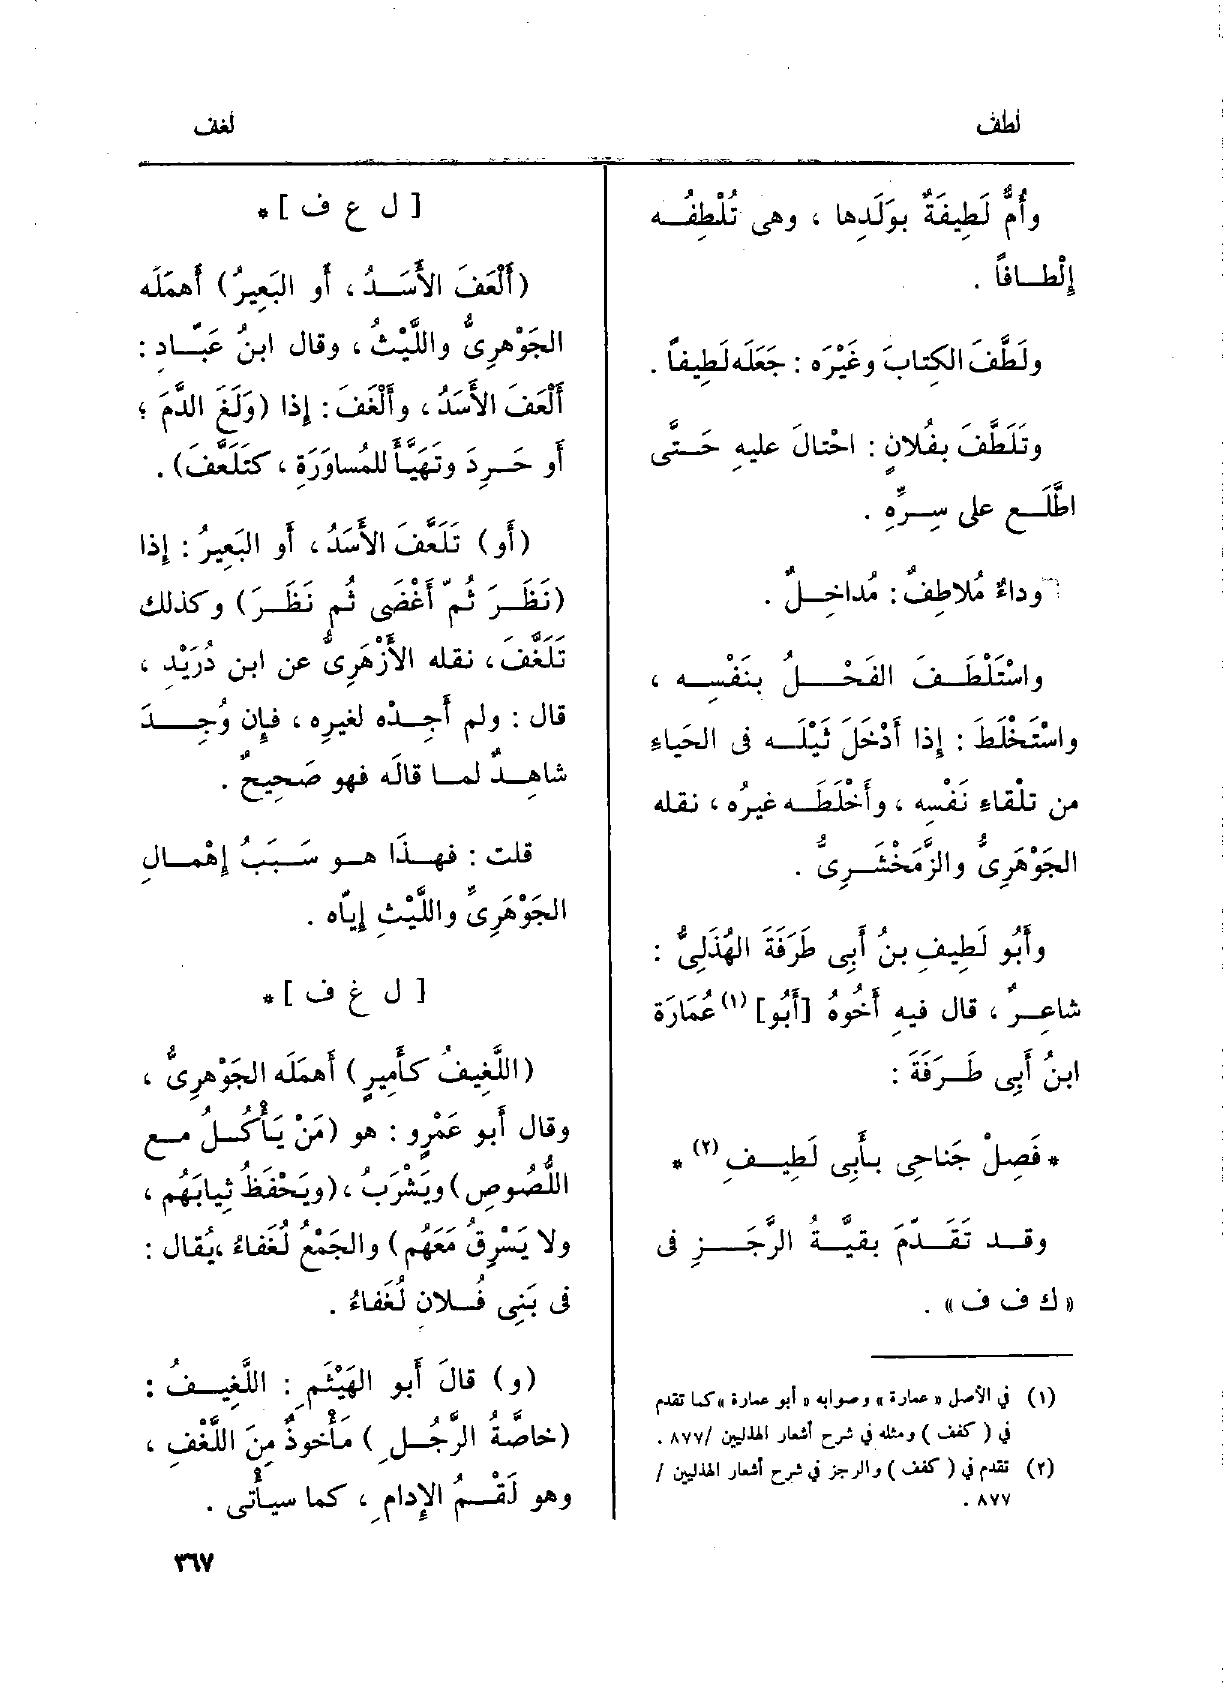 لطف
لغف
وأُمٌّ لَطِيفَةٌ بوَلَدِها ، وهى تُلْطِفُـه
إِلْطـافاً .
ولَطَّفَ الكِتابَ وغَيْرَه : جَعَلَه لَطِيفاً .
وتَلَطَّفَ بفُلانٍ : احْتالَ عليهِ حَـتَّى
اطَّلَـع على سِـرِّهِ .
وداءٌ مُلاطِفٌ : مُداخِـلٌ .
واسْتَلْطَـفَ الفَحْـلُ بنَفْسِـه ،
واسْتَخْلَطَ : إذا أَدْخَلَ ثَيْلَـه فى الحَياءِ
من تلْقاءِ نَفْسِه ، وأَخْلَطَـه غيرُه ، نقله
الجَوْهَرِىُّ والزَّمَخْشَـرِىُّ .
وأَبُو لَطِيفِ بنُ أَبِى طَرَفَةَ الهُذَلِىُّ :
شاعِـرٌ ، قال فيهِ أَخُوهُ [أَبُو] (١) عُمَارَة
ابنُ أَبِى طَـرَفَةَ :
* فَصِلْ جَناحِى بـأَبِى لَطِيـفِ (٢) *
وقـد تَقَـدّمَ بقيَّـةُ الرَّجَـزِ فى
« ك ف ف » .
(١) في الأصل « عمارة » وصوابه « أبو عمارة » كما تقدم
في ( كفف ) ومثله في شرح أشعار الهذليين /٨٧٧ .
(٢) تقدم في ( كفف ) والرجز في شرح أشعار الهذليين /
٨٧٧ .
[ ل ع ف ] *
(أَلْعَفَ الأَسَـدُ ، أَو البَعِيرُ) أَهمَلَه
الجَوْهرِىُّ واللَّيْثُ ، وقال ابنُ عَبّـادٍ :
أَلْعَفَ الأَسَدُ ، وأَلْغَفَ : إذا (وَلَغَ الدَّمَ ؛
أَو حَـرِدَ وتَهَيَّأَ للمُساوَرَةِ ، كتَلَعَّفَ) .
(أَو) تَلَعَّفَ الأَسَدُ ، أَو البَعِيرُ : إذا
(نَظَـرَ ثُمّ أَغْضَى ثُم نَظَـرَ) وكذلك
تَلَغَّفَ ، نقله الأَزْهَرِىُّ عن ابن دُرَيْدٍ ،
قال : ولم أَجِـدْه لغيرِه ، فإن وُجِـدَ
شاهِـدٌ لمـا قالَه فهو صَحِيحٌ .
قلت : فهـذَا هـو سَـبَبُ إهْمـالِ
الجَوْهَرِىِّ واللَّيْثِ إيّاه .
[ ل غ ف ] *
(اللَّغِيفُ كأَمِيرٍ) أَهمَلَه الجَوْهرِىُّ ،
وقال أَبو عَمْرٍو : هو (مَنْ يَـأْكُـلُ مـع
اللُّصُوصِ) ويَشْرَبُ ، (ويَحْفَظُ ثِيابَهُم ،
ولا يَسْرِقُ مَعَهُم) والجَمْعُ لُغَفاءُ ، يُقال :
فى بَنِى فُـلانٍ لُغَفاءُ .
(و) قالَ أَبو الهَيْثَمِ : اللَّغِيـفُ :
(خاصَّةُ الرَّجُـلِ ) مَأْخوذٌ مِنَ اللَّغْفِ ،
وهو لَقْـمُ الإِدامِ ، كما سيـأْتى .
٣٦٧